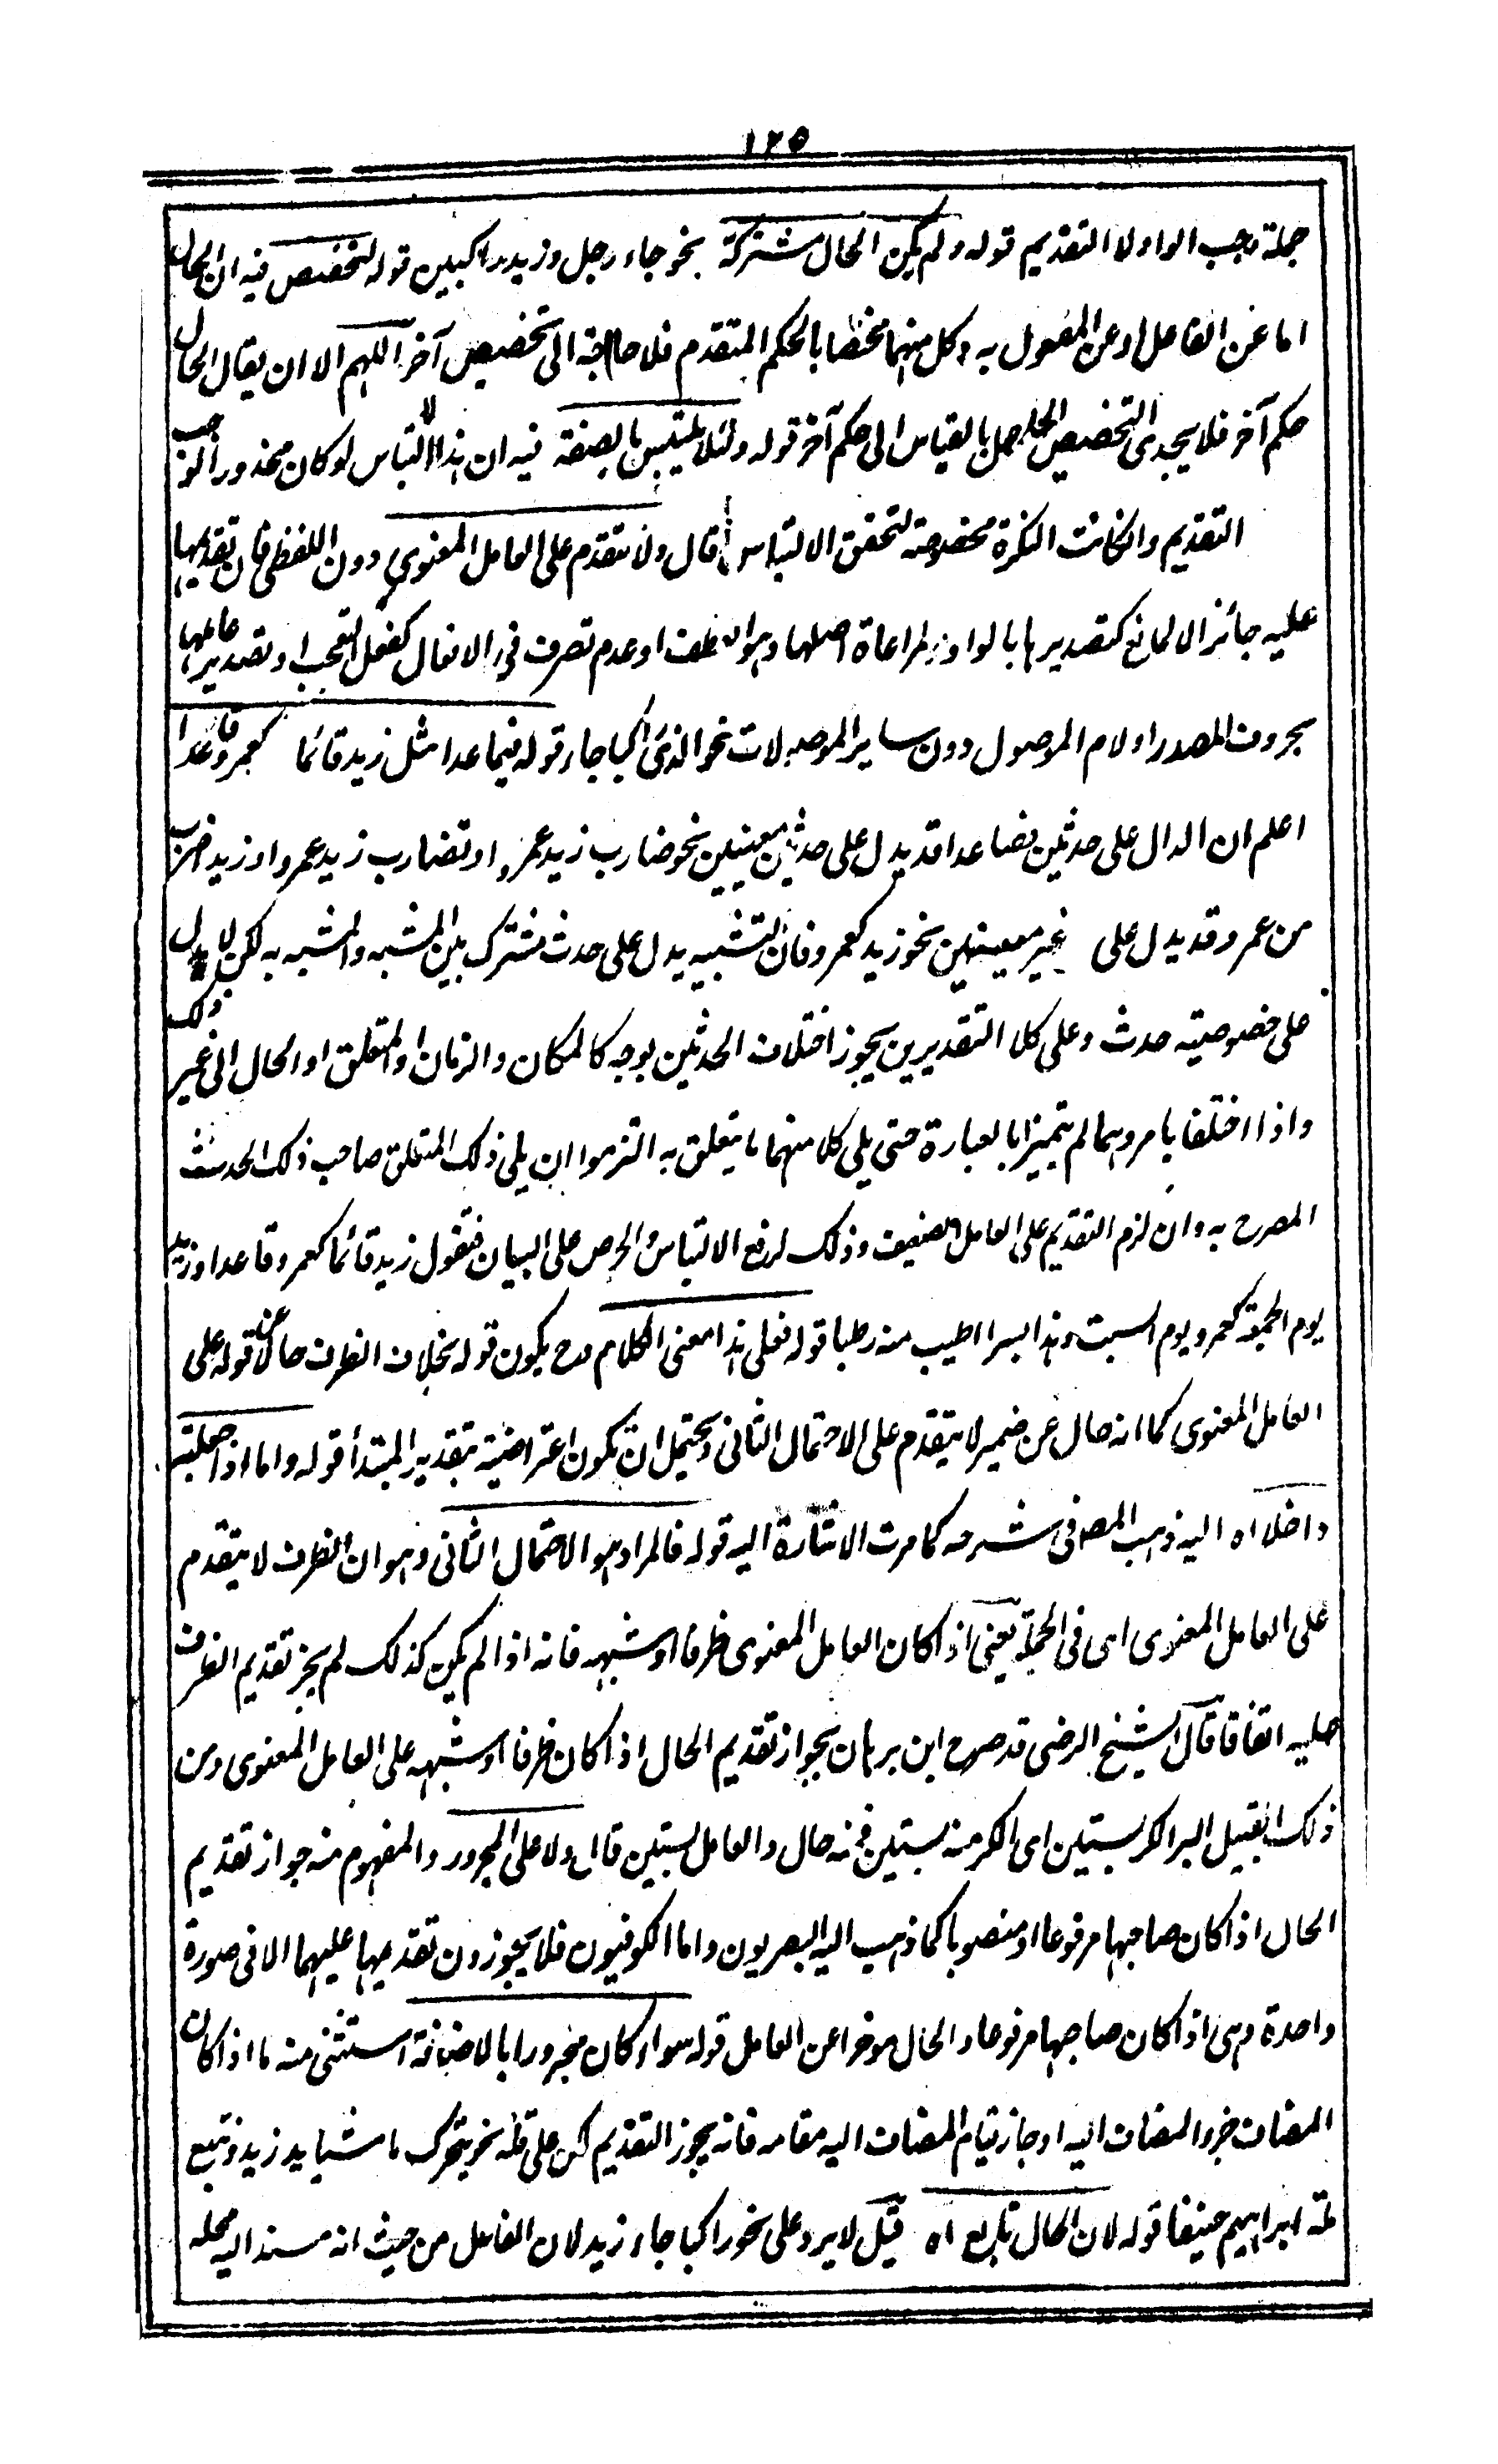 ١٢٥
جملة وجب الواو لا التقديم قوله ولم يكن الحال مشتركة نحو جاء رجل وزيد راكبين قوله لتخصيص فيه ان الحال
اما عن الفاعل او عن المفعول به وكل منهما مختصا بالحكم المتقدم فلا حاجة الى تخصيص آخر اللهم الا ان يقال الحال
حكم آخر فلا يجدى التخصيص الحاصل بالقياس الى حكم آخر قوله ولئلا يلتبس بالصفة فيه ان هذا الالتباس لو كان محذورا لوجب
التقديم وان كانت النكرة مخصوصة لتحقق الالتباس قال ولا تتقدم على العامل المعنوي دون اللفظى فان تقديمها
عليه جائز الا لمانع كتصديرها بالواو لمراعاة اصلها وهو العطف او عدم تصرف فى الافعال كفعل التعجب او تصدير عاملها
بحروف المصدر او لام الموصول دون سائر الموصولات نحو الذى راكبا جاء قوله فيما عدا مثل زيد قائما كعمرو قاعدا
اعلم ان الدال على حدثين فصاعدا قد يدل على حدثين معينين نحو ضارب زيد عمرو او تضارب زيد عمرو او زيد اضرب
من عمرو وقد يدل على غير معينين نحو زيد كعمرو فان التشبيه يدل على حدث مشترك بين المشبه والمشبه به لكن لا يدل
على خصوصية حدث وعلى كلا التقديرين يجوز اختلاف الحدثين بوجه كالمكان والزمان او المتعلق او الحال الى غير ذلك
واذا اختلفا بامر وهما لم يتميزا بالعبارة حتى يلى كلا منهما ما يتعلق به التزموا ان يلى ذلك المتعلق صاحب ذلك الحدث
المصرح به وان لزم التقديم على العامل الضعيف وذلك لرفع الالتباس والحرص على البيان فتقول زيد قائما كعمرو قاعدا وزيد
يوم الجمعة كعمرو يوم السبت وهذا بسرا اطيب منه رطبا قوله فعلى هذا معنى الكلام وح يكون قوله بخلاف الظرف حالا عن قوله على
العامل المعنوى كما انه حال عن ضمير لا يتقدم على الاحتمال الثانى ويحتمل ان تكون اعتراضية بتقدير المبتدأ قوله واما اذا جعلته
داخلا اه اليه ذهب المصر فى شرحه كما مرت الاشارة اليه قوله فالمراد هو الاحتمال الثانى وهو ان الظرف لا يتقدم
على العامل المعنوى اى فى الجملة يعنى اذا كان العامل المعنوى ظرفا او شبهه فانه اذا لم يكن كذلك لم يجز تقديم الظرف
عليه اتفاقا قال الشيخ الرضى قد صرح ابن برهان بجواز تقديم الحال اذا كان ظرفا او شبهه على العامل المعنوى ومن
ذلك القبيل البر الكر بستين اى الكر منه بستين فمنه حال والعامل بستين قال ولا على المجرور والمفهوم منه جواز تقديم
الحال اذا كان صاحبها مرفوعا او منصوبا كما ذهب اليه البصريون واما الكوفيون فلا يجوزون تقديمها عليهما الا فى صورة
واحدة وهى اذا كان صاحبها مرفوعا والحال موخرا عن العامل قوله سواء كان مجرورا بالاضافة استثنى منه ما اذا كان
المضاف جزو المضاف اليه او جاز قيام المضاف اليه مقامه فانه يجوز التقديم لكن على قلة نحو يتحرك ماشيا يد زيد ونتبع
ملة ابراهيم حنيفا قوله لان الحال تابع اه قيل لا يرد على نحو راكبا جاء زيد لان الفاعل من حيث انه مسند اليه محله